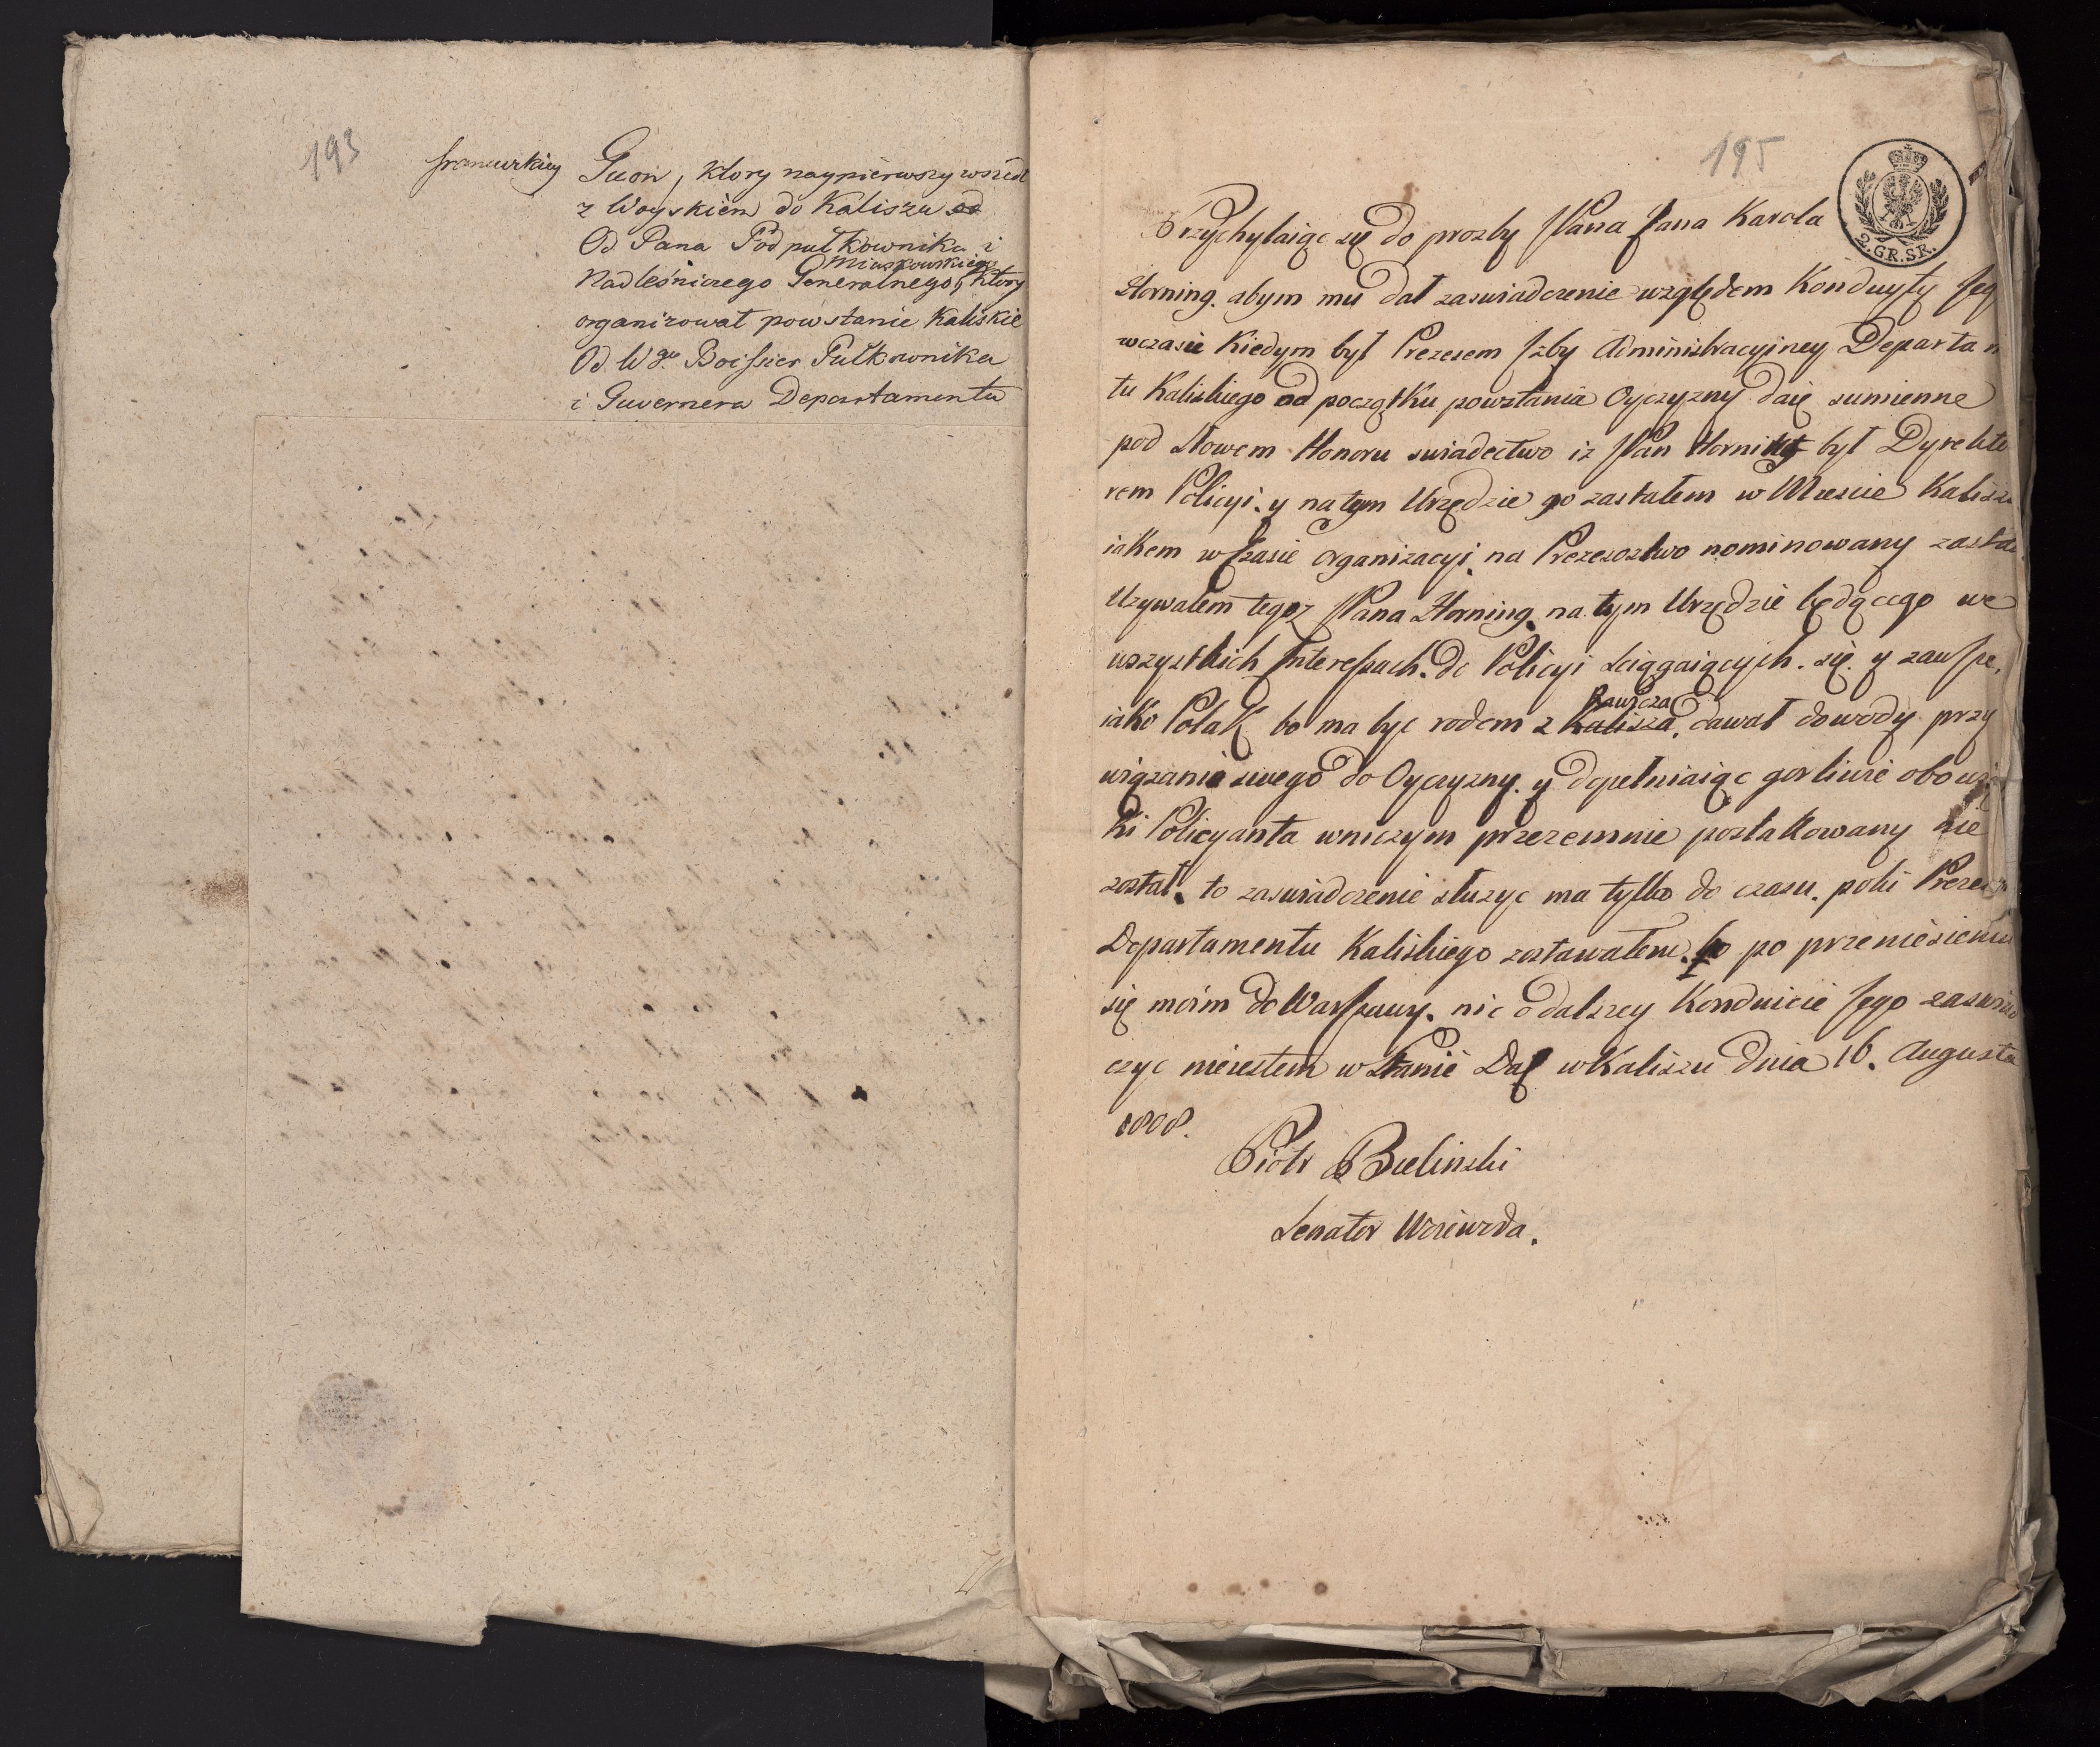 193
francuzkiey Guon, ktory naypierwszy wszedł
z Woyskiem do Kalisza od
Od Pana Podpułkownika i
Miaskowskiego
Nadleśniczego Generalnego, ktory
organizował powstanie Kaliskie
Od Wgo Boissier Pułkownika
i Guvernera Departamentu
195
2. GR. SR.
Przychylaiąc się do prozby JPana Jana Karola
Horning. abym mu dał zaswiadczenie względem Konduyty Jeg
wczasie Kiedym był Prezesem Izby Administracyiney Departam
tu Kaliskiego od początku powstania Oyczyzny daię sumienne
pod Słowem Honoru swiadectwo iz JPan Horning był Dyrekto
rem Policyi. y na tym Urzędzie go zastałem w Miescie Kalisz
iakem w czasie organizacyi na Prezesostwo nominowany zosta
Uzywałem tegoz JPana Horning na tym Urzędzie będącego we
wszystkich Interessach. do Policyi sciągaiących. się. y zawsze,
Rawicza
iako Polak bo ma byc rodem z Kalisza, dawał dowody przy
wiązania swego do Oyczyzny. y dopełniaiąc gorliwie obowią
ki Policyanta wniczym przezemnie poszlakowany nie
został. to zaswiadczenie służyc ma tylko do czasu. poki Preze
Departamentu Kaliskiego zostawałem. bo po przeniesieniu
się moim do Warszawy. nic o dalszey Konduicie Jego zaswiad
czyc nieiestem w Stanie Dał w Kaliszu dnia 16. Augusta
1808.
Piotr Bielinski
Senator Woiewoda.